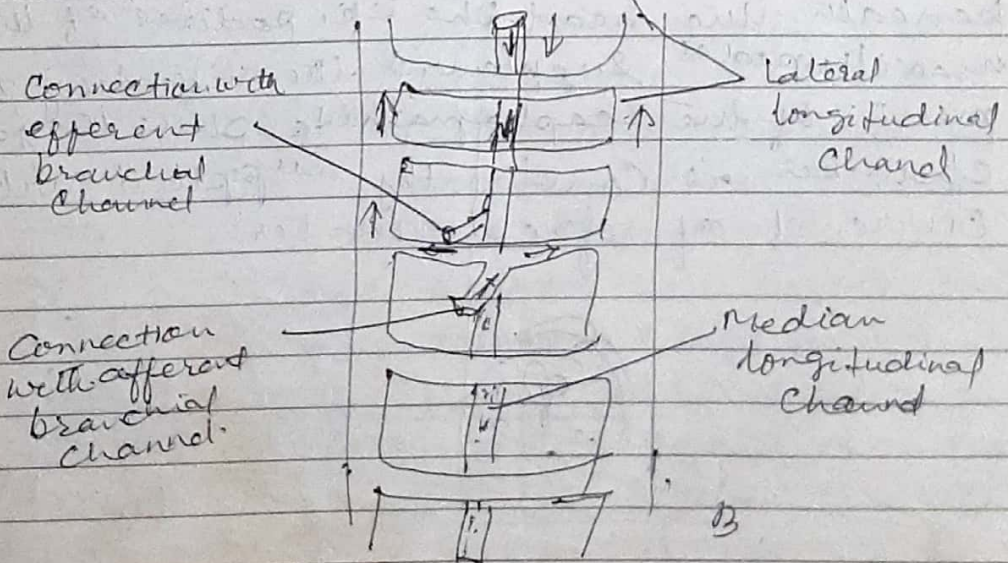 Connection with
efferent
branchial
Channel
Lateral
longitudinal
Channel
Connection
with afferent
branchial
Channel.
Median
longitudinal
Channel
B